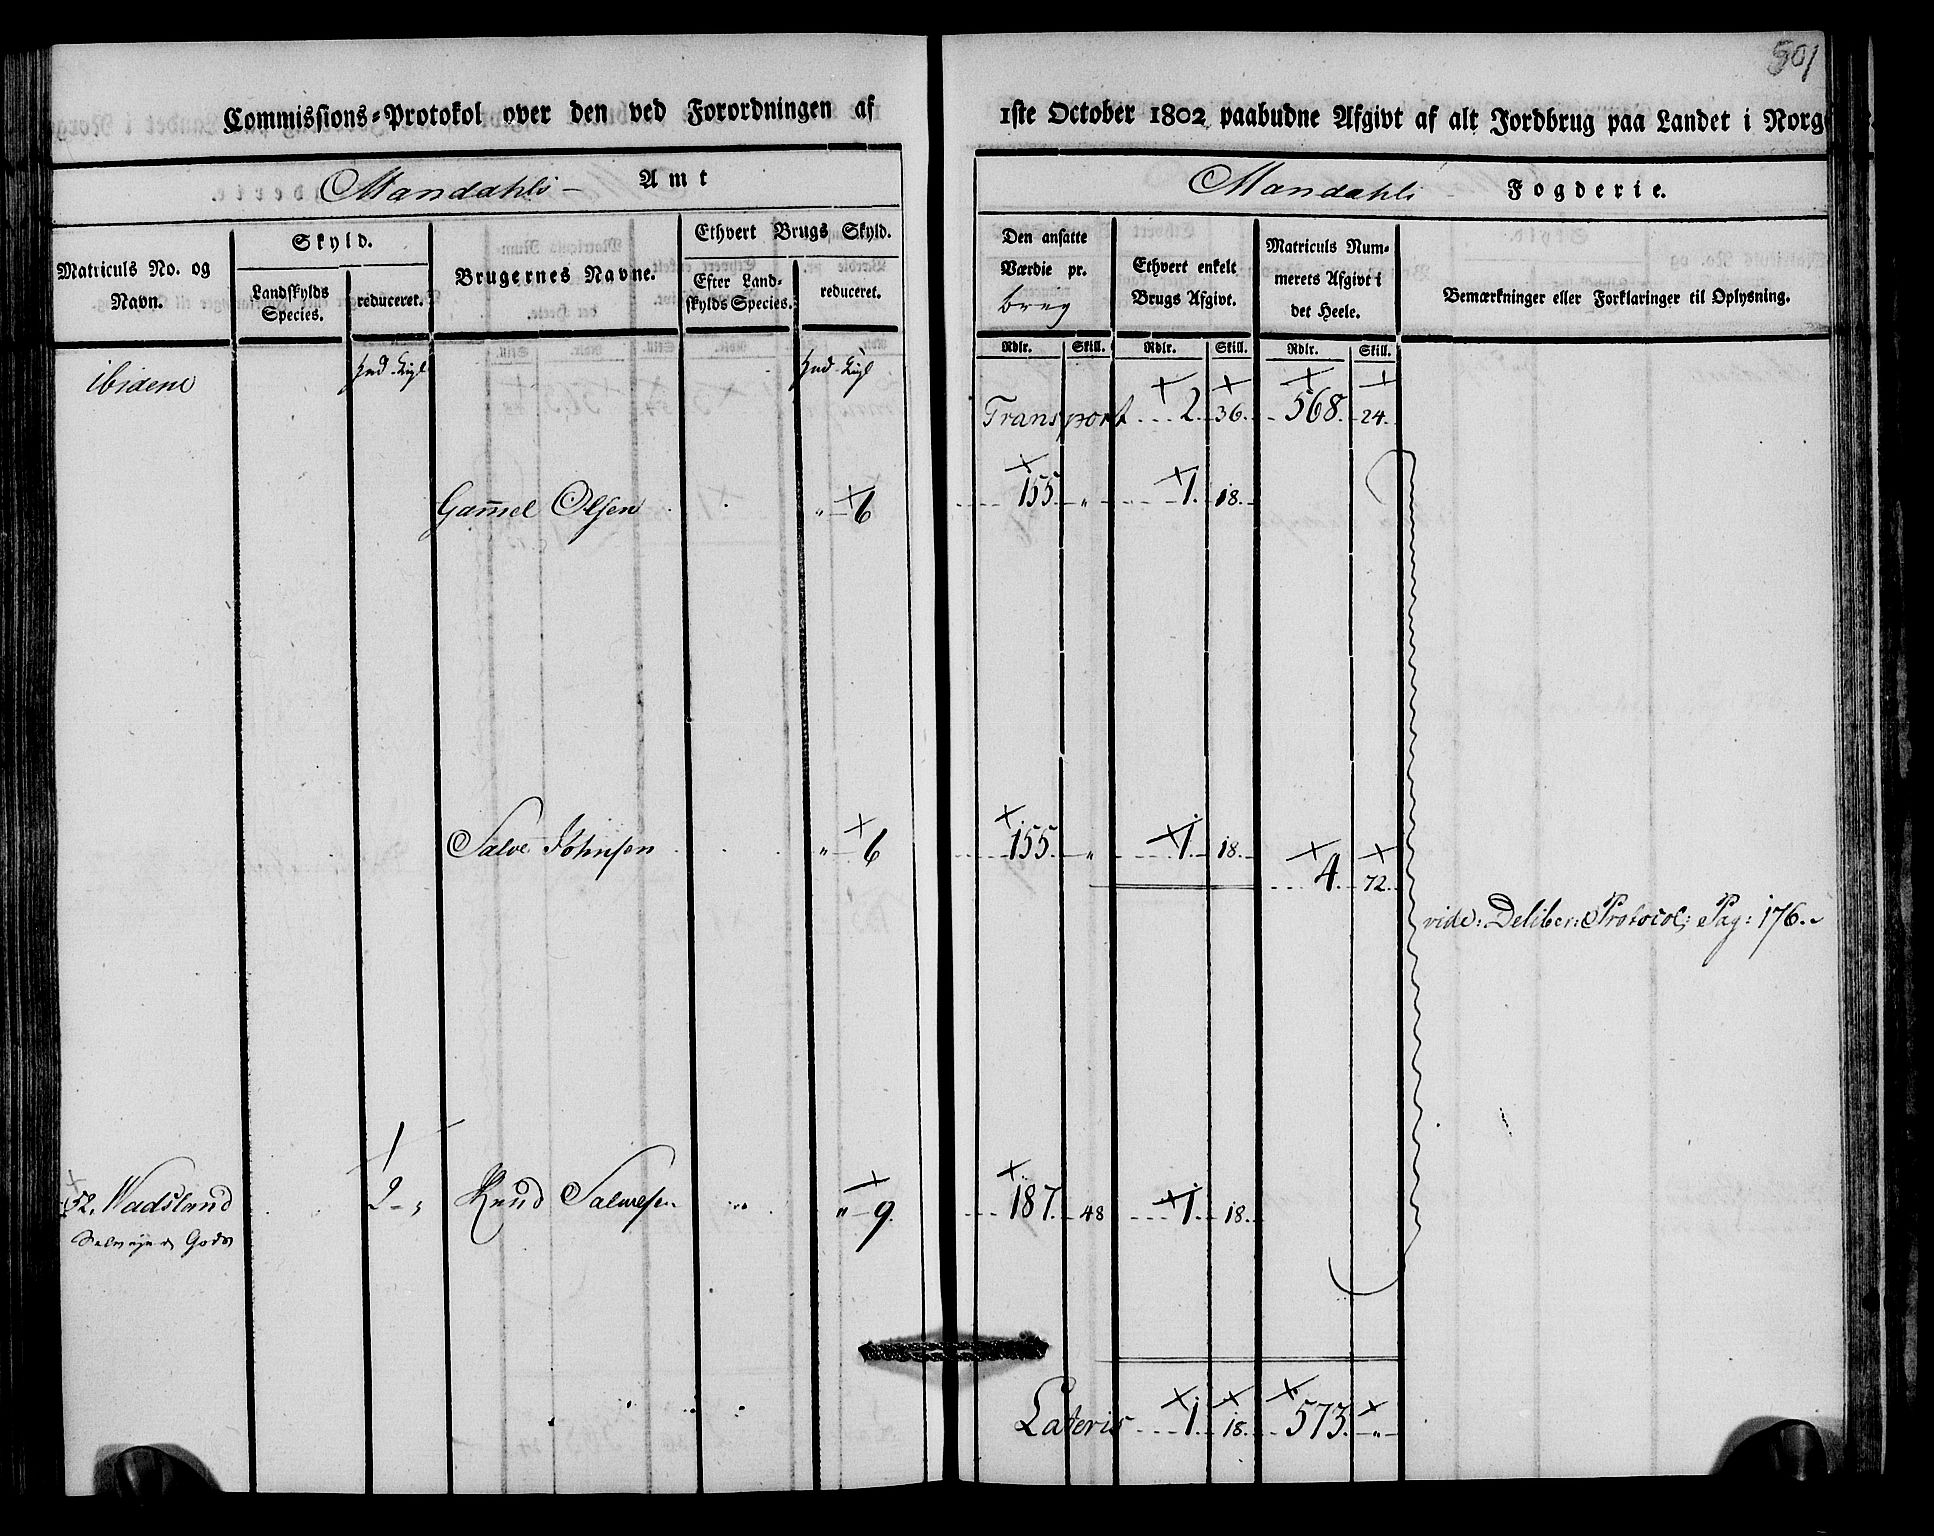 501
Commissions-Protokol over den ved Forordningen af 1ste October 1802 paabudne Afgivt af alt Jordbrug paa Landet i Norge
Mandahls Amt
Mandahls Fogderie.
Matriculs No. og Navn.
Skyld.
Landskylds Species.
reduceret.
Brugernes Navne.
Ethvert Brugs Skyld.
Efter Landskylds Species.
reduceret.
Den ansatte Værdie pr. brug
Ethvert enkelt Brugs Afgivt.
Matriculs Nummerets Afgivt i det Heele.
Bemærkninger eller Forklaringer til Oplysning.
Rdlr. Skill. Rdlr. Skill. Rdlr. Skill.
ibidem
Transport 2. 36. 568. 24.
Gam̄el Olsen " 6 155 " 1. 18.
Salve Johnsen " 6 155 " 1. 18.
4. 72.
vide: Deliber: Protocol: Pag: 176.
52. Wadsland 2 - " Knud Salvesen " 9. 187. 48 1. 18.
Selvejende Gods
Lateris 1. 18. 573. "